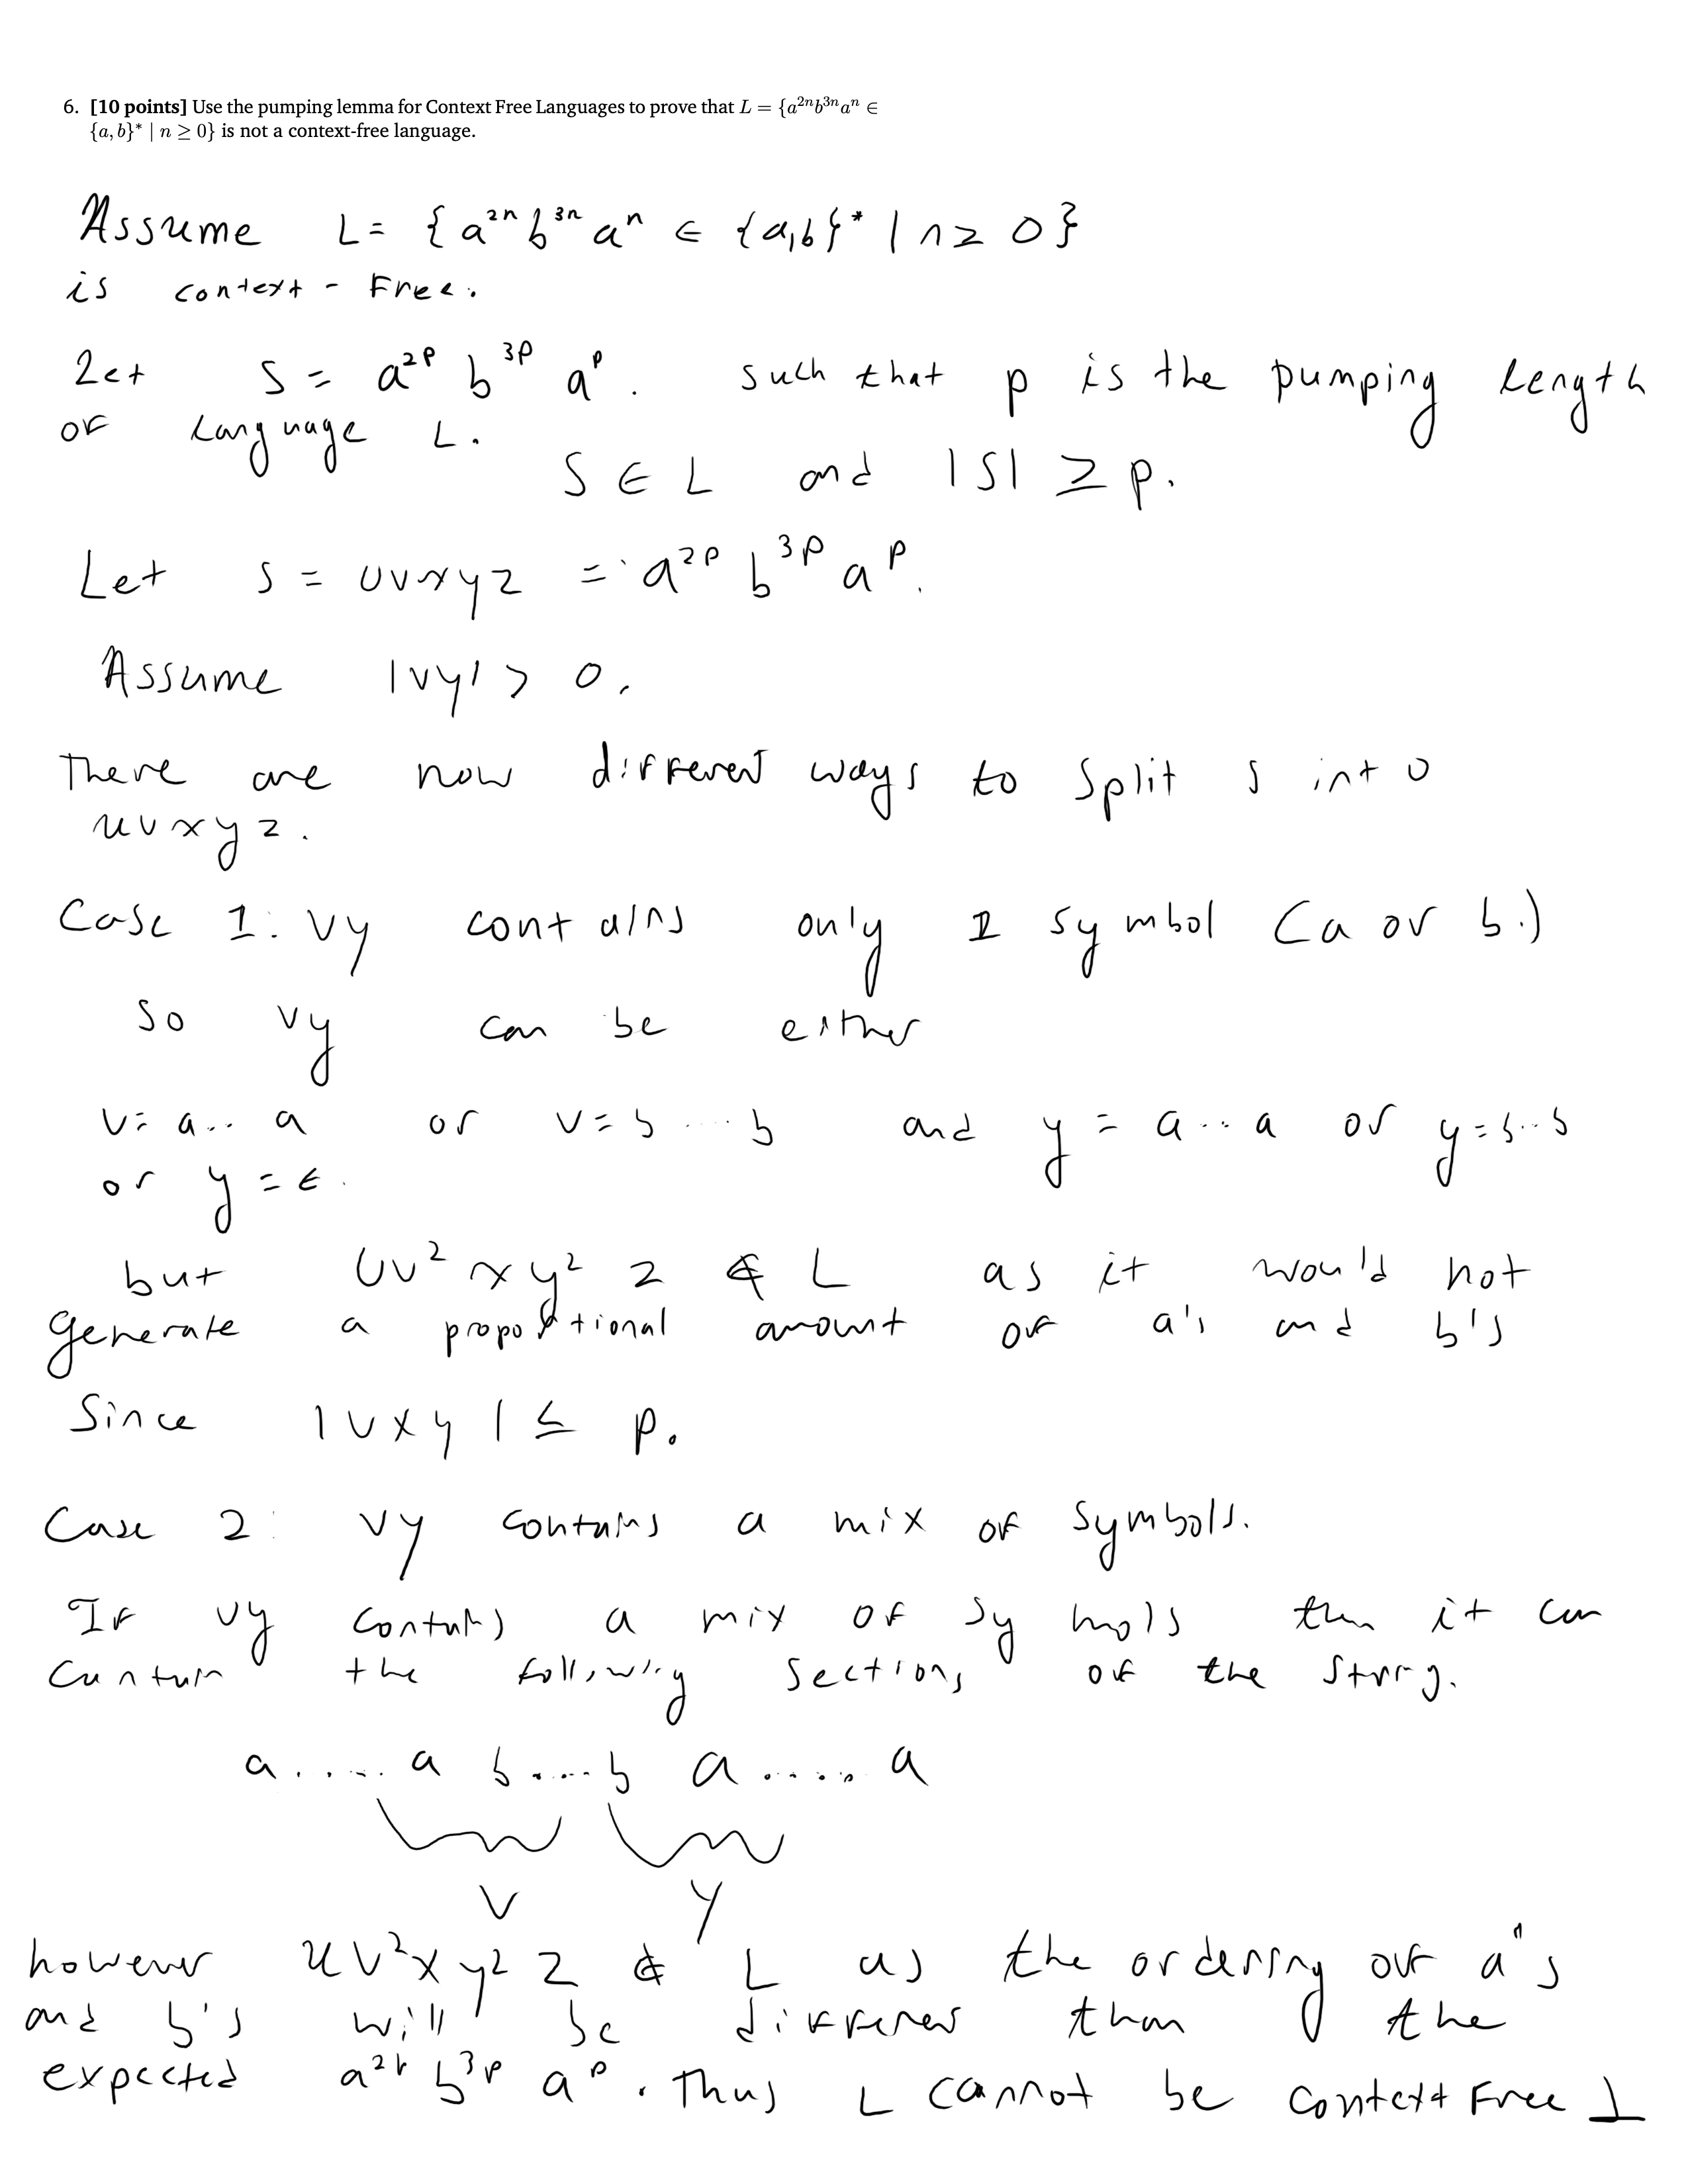 6. [10 points] Use the pumping lemma for Context Free Languages to prove that L = {a²ⁿb³ⁿaⁿ ∈
{a, b}* | n ≥ 0} is not a context-free language.
Assume L = {a²ⁿb³ⁿaⁿ ∈ {a,b}* | n ≥ 0}
is context-Free.
Let S = a²ᵖ b³ᵖ aᵖ. such that p is the pumping length
of language L.
S ∈ L and |S| ≥ p.
Let s = uvxyz = a²ᵖ b³ᵖ aᵖ.
Assume |vy| > 0.
There are now different ways to split s into
uvxyz.
Case 1: vy contains only 1 symbol (a or b.)
So vy can be either
v = a.. a or v = b .... b and y = a... a or y = b... b
or y = ϵ.
but uv²xy²z ∉ L as it would not
generate a proportional amount of a's and b's
Since |vxy| ≤ p.
Case 2: vy contains a mix of symbols.
If vy contains a mix of symbols then it can
contain the following sections of the string.
a.....a b.....b a......a
v y
however uv²xy²z ∉ L as the ordering of a's
and b's will be different than the
expected a²ᵖ b³ᵖ aᵖ. Thus L cannot be context Free ⊥